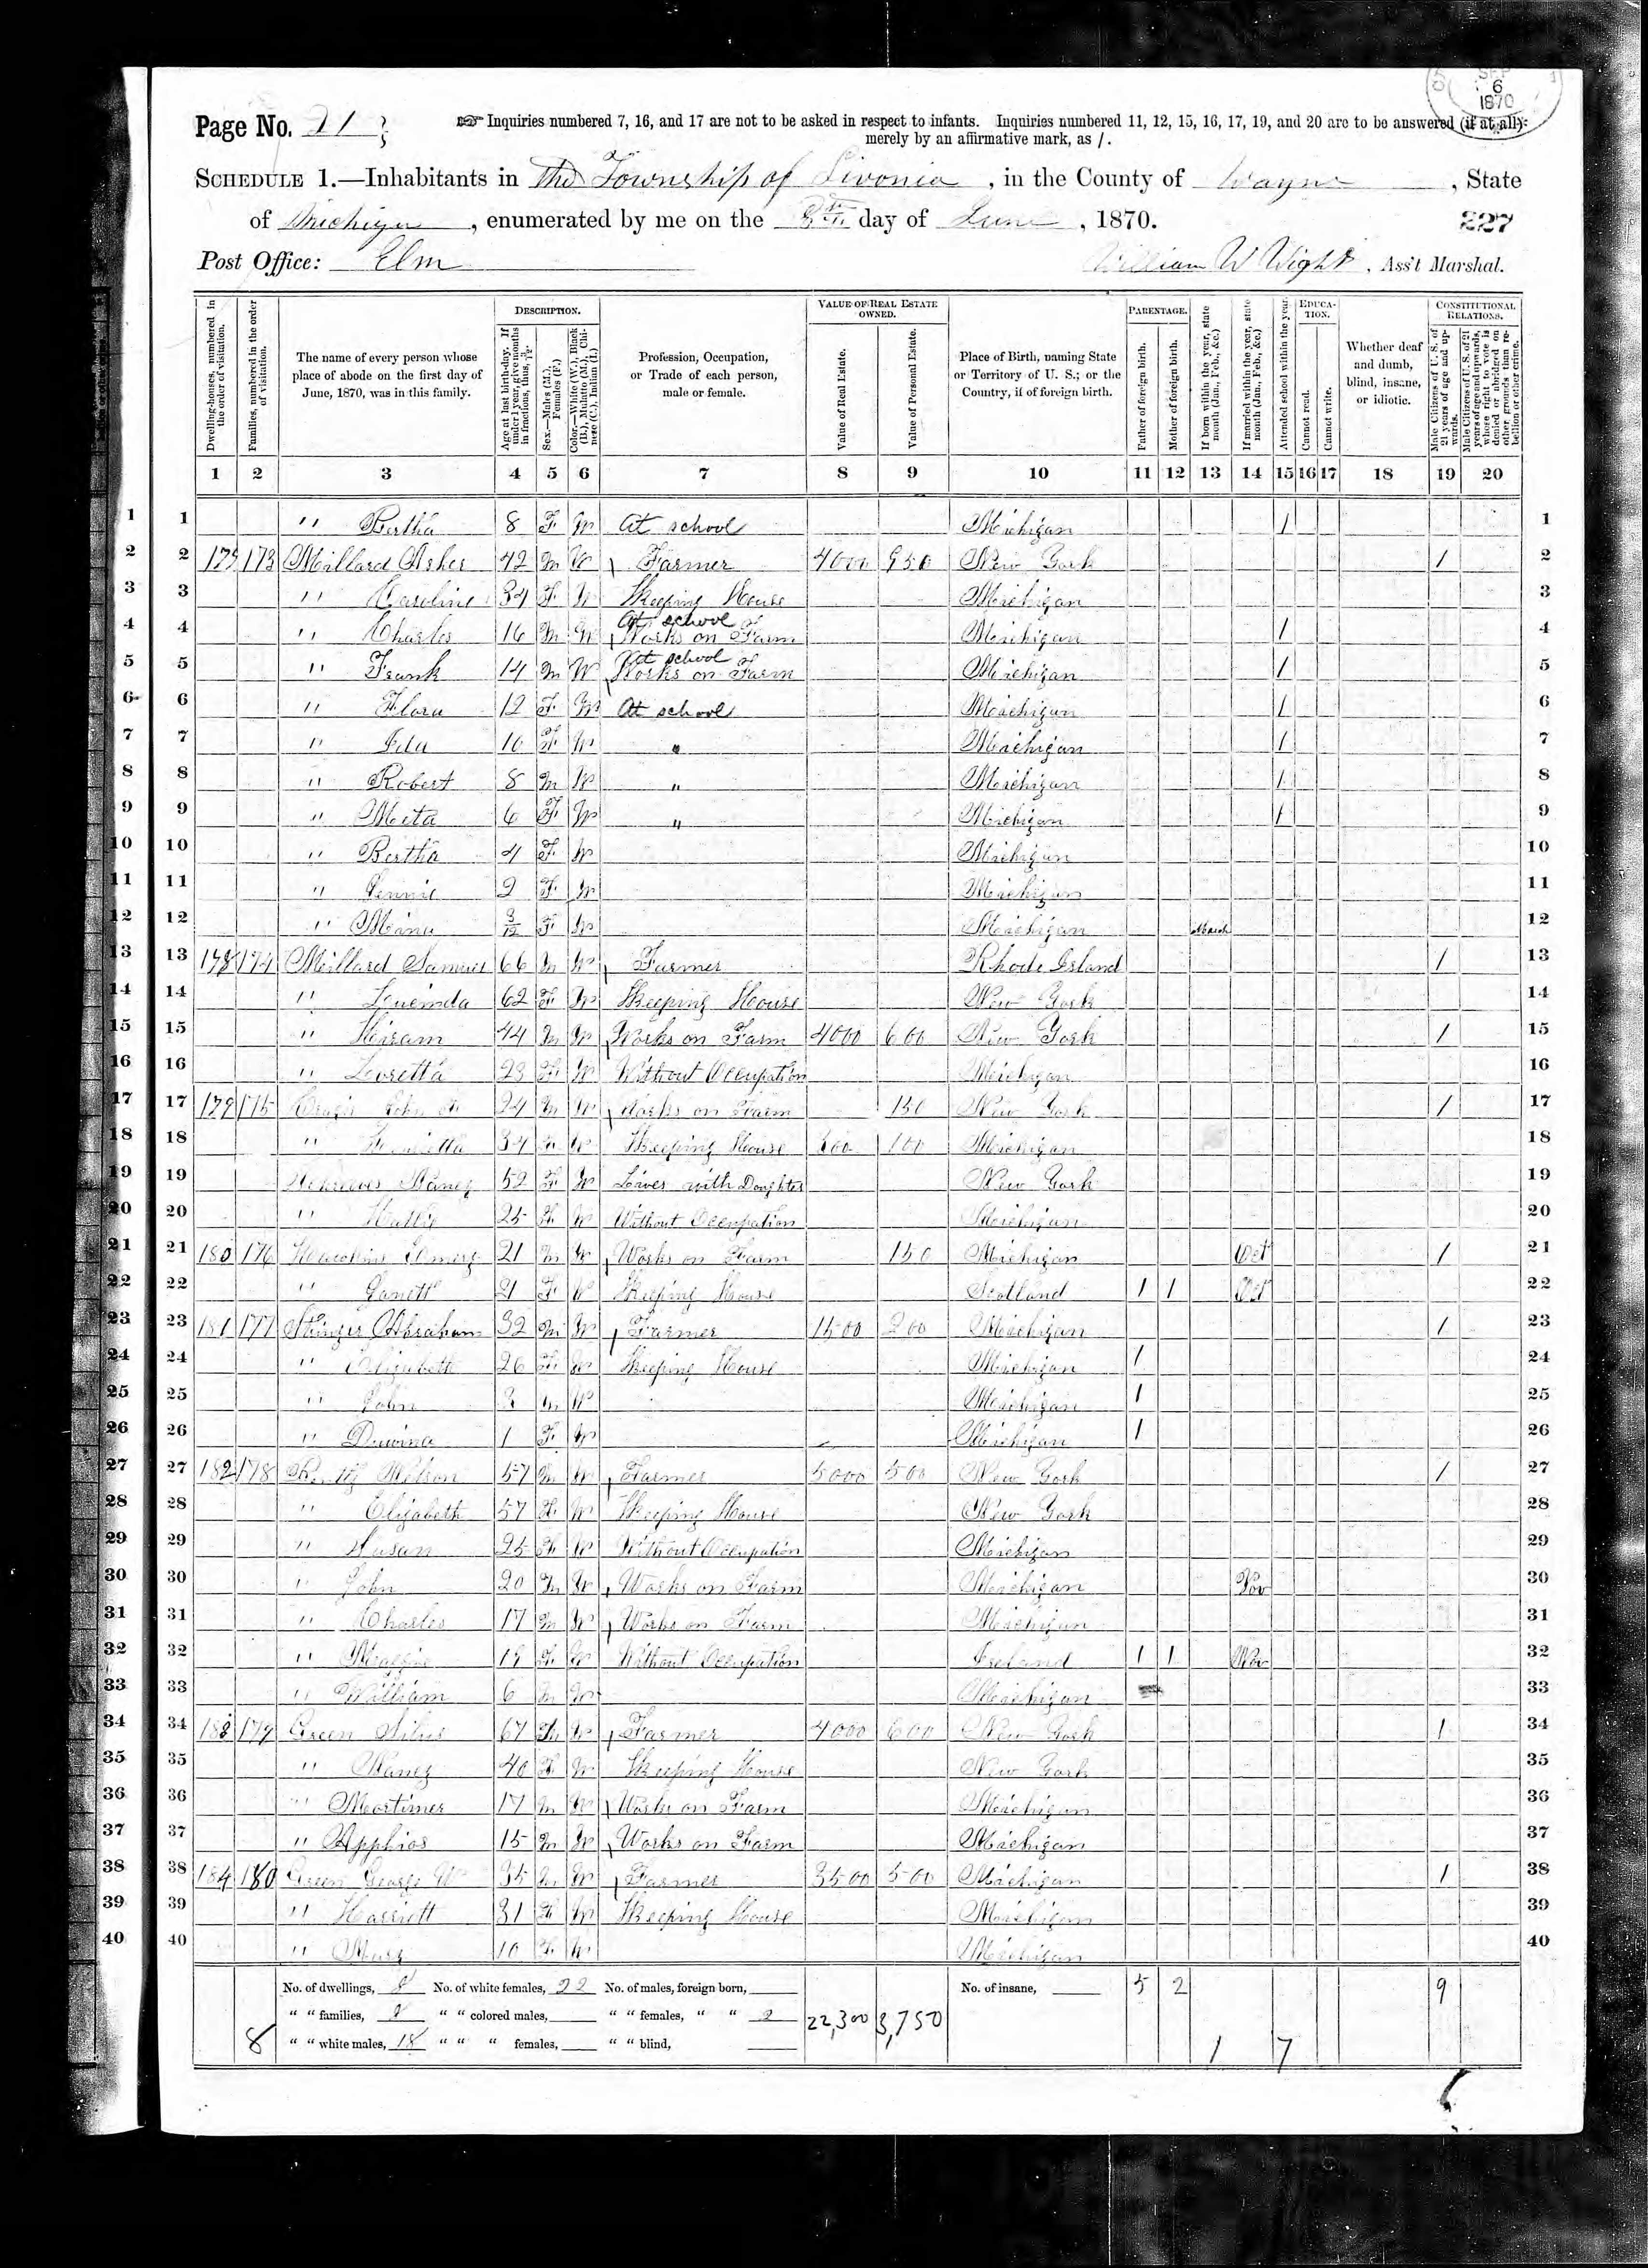 SEP 6 1870
Page No. 21
Inquiries numbered 7, 16, and 17 are not to be asked in respect to infants. Inquiries numbered 11, 12, 15, 16, 17, 19, and 20 are to be answered (if at all)
merely by an affirmative mark, as /.
SCHEDULE 1.—Inhabitants in the Township of Livonia, in the County of Wayne, State
of Michigan, enumerated by me on the 8th day of June, 1870.
227
Post Office: Elm William W Wight, Ass't Marshal.
Dwelling-houses, numbered in the order of visitation.
Families, numbered in the order of visitation.
The name of every person whose place of abode on the first day of June, 1870, was in this family.
DESCRIPTION.
Age at last birth-day. If under 1 year, give months in fractions, thus, 3/12.
Sex.—Males (M.), Females (F.)
Color.—White (W.), Black (B.), Mulatto (M.), Chinese (C.), Indian (I.)
Profession, Occupation, or Trade of each person, male or female.
VALUE OF REAL ESTATE OWNED.
Value of Real Estate.
Value of Personal Estate.
Place of Birth, naming State or Territory of U. S.; or the Country, if of foreign birth.
PARENTAGE.
Father of foreign birth.
Mother of foreign birth.
If born within the year, state month (Jan., Feb., &c.)
If married within the year, state month (Jan., Feb., &c.)
Attended school within the year.
EDUCATION.
Cannot read.
Cannot write.
Whether deaf and dumb, blind, insane, or idiotic.
CONSTITUTIONAL RELATIONS.
Male Citizens of U. S. of 21 years of age and upwards.
Male Citizens of U. S. of 21 years of age and upwards, whose right to vote is denied or abridged on other grounds than rebellion or other crime.
1 2 3 4 5 6 7 8 9 10 11 12 13 14 15 16 17 18 19 20
1 1 " Bertha 8 F W At school Michigan / 1
2 2 173 Millard Asher 42 M W Farmer 4000 950 New York / 2
3 3 " Caroline 34 F W Keeping House Michigan 3
4 4 " Charles 16 M W At school Works on Farm Michigan / 4
5 5 " Frank 14 M W At school Works on Farm Michigan / 5
6 6 " Flora 12 F W At school Michigan / 6
7 7 " Ida 10 F W " Michigan / 7
8 8 " Robert 8 M W " Michigan / 8
9 9 " Meta 6 F W " Michigan / 9
10 10 " Bertha 4 F W Michigan 10
11 11 " Jennie 2 F W Michigan 11
12 12 " Mina 3/12 F W Michigan March 12
13 13 178 174 Millard Samuel 66 M W Farmer Rhode Island / 13
14 14 " Lucinda 62 F W Keeping House New York 14
15 15 " Hiram 44 M W Works on Farm 4000 600 New York / 15
16 16 " Loretta 23 F W Without Occupation Michigan 16
17 17 179 175 John 24 M W Works on Farm 150 New York / 17
18 18 " 34 W Keeping House 300 100 Michigan 18
19 19 Nancy 52 F W Lives with Daughter New York 19
20 20 " Hattie 25 F W Without Occupation Michigan 20
21 21 180 176 21 M W Works on Farm 150 Michigan Oct / 21
22 22 " Janett 21 F W Keeping House Scotland / / Oct 22
23 23 181 177 Abraham 32 M W Farmer 1500 200 Michigan / 23
24 24 " Elizabeth 26 F W Keeping House Michigan / 24
25 25 " John M W Michigan / 25
26 26 " 1 F W Michigan / 26
27 27 182 178 Nelson 57 M W Farmer 5000 500 New York / 27
28 28 " Elizabeth 57 F W Keeping House New York 28
29 29 " Susan 25 F W Without Occupation Michigan 29
30 30 " John 20 M W Works on Farm Michigan Nov 30
31 31 " Charles 17 M W Works on Farm Michigan 31
32 32 " Maggie F W Without Occupation Ireland / / Nov 32
33 33 " William 6 M W Michigan 33
34 34 183 179 Green Silas 67 M W Farmer 4000 600 New York / 34
35 35 " Nancy 40 F W Keeping House New York 35
36 36 " Mortimer 17 M W Works on Farm Michigan 36
37 37 " Apphios 15 M W Works on Farm Michigan 37
38 38 184 180 Green George W 35 M W Farmer 3500 500 Michigan / 38
39 39 " Harriett 31 F W Keeping House Michigan 39
40 40 " Mary 10 F W Michigan 40
No. of dwellings, 8 No. of white females, 22 No. of males, foreign born, No. of insane, 5 2 9
" " families, 8 " " colored males, " " females, " " 2 22,300 3,750
8 " " white males, 18 " " " females, " " blind, 1 7